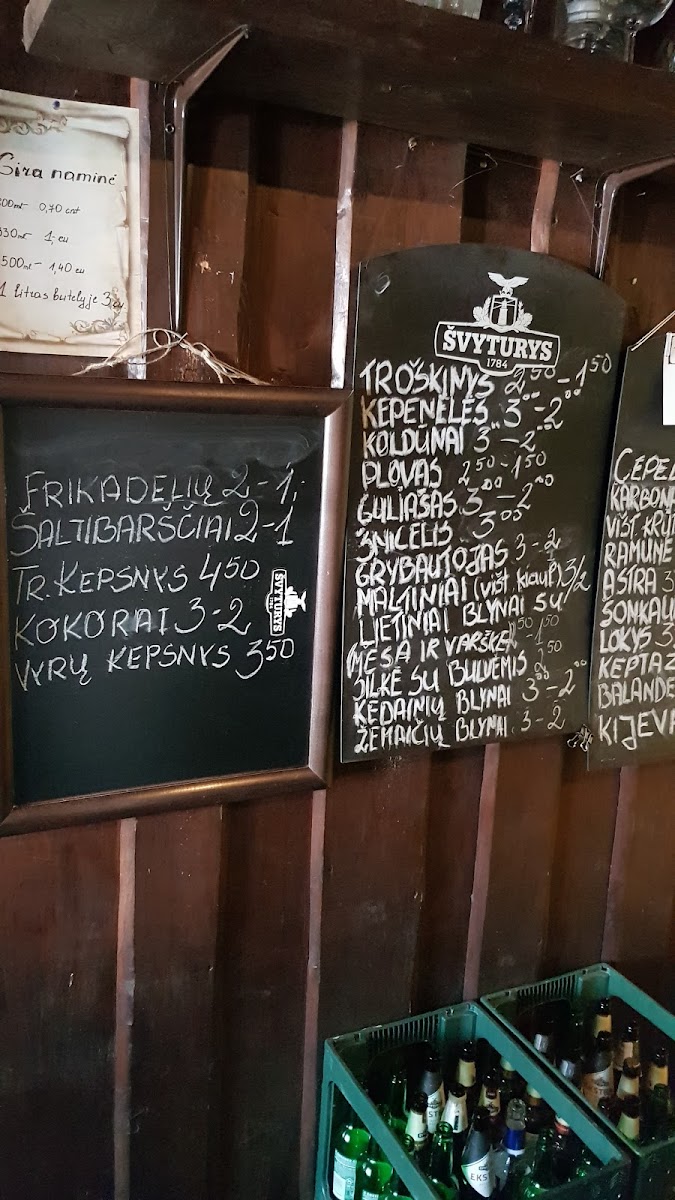 Gira naminė
0,70 cnt
330ml- 1,- eu
500ml- 1,40 eu
1 litras butelyje 3,eu
FRIKADELIŲ 2-1,-
ŠALTIBARŠČIAI 2-1
TR. KEPSNYS 4 50
KOKORAI 3-2
VYRŲ KEPSNYS 3 50
ŠVYTURYS
ŠVYTURYS
1784
TROŠKINYS 2 50 - 1 50
KEPENĖLĖS 3 00 - 2 00
KOLDŪNAI 3 - 2
PLOVAS 2 50 - 1 50
GULIAŠAS 3 00 - 2 00
ŠNICELIS 3 00
GRYBAUTOJAS 3 - 2
MALTINIAI (višt kiauł) 3/2
LIETINIAI BLYNAI SU
MĖSA IR VARŠKE 2 50 - 1 50
SILKĖ SU BULVĖMIS 2 50
KĖDAINIŲ BLYNAI 3 00 - 2 00
ŽEMAIČIŲ BLYNAI. 3 - 2
CEPEL
KARBONA
VIŠT KRŪT
RAMUNĖ
ASTRA 3
ŠONKAU
LOKYS 3
KEPTA
BALANDĖ
KIJEV